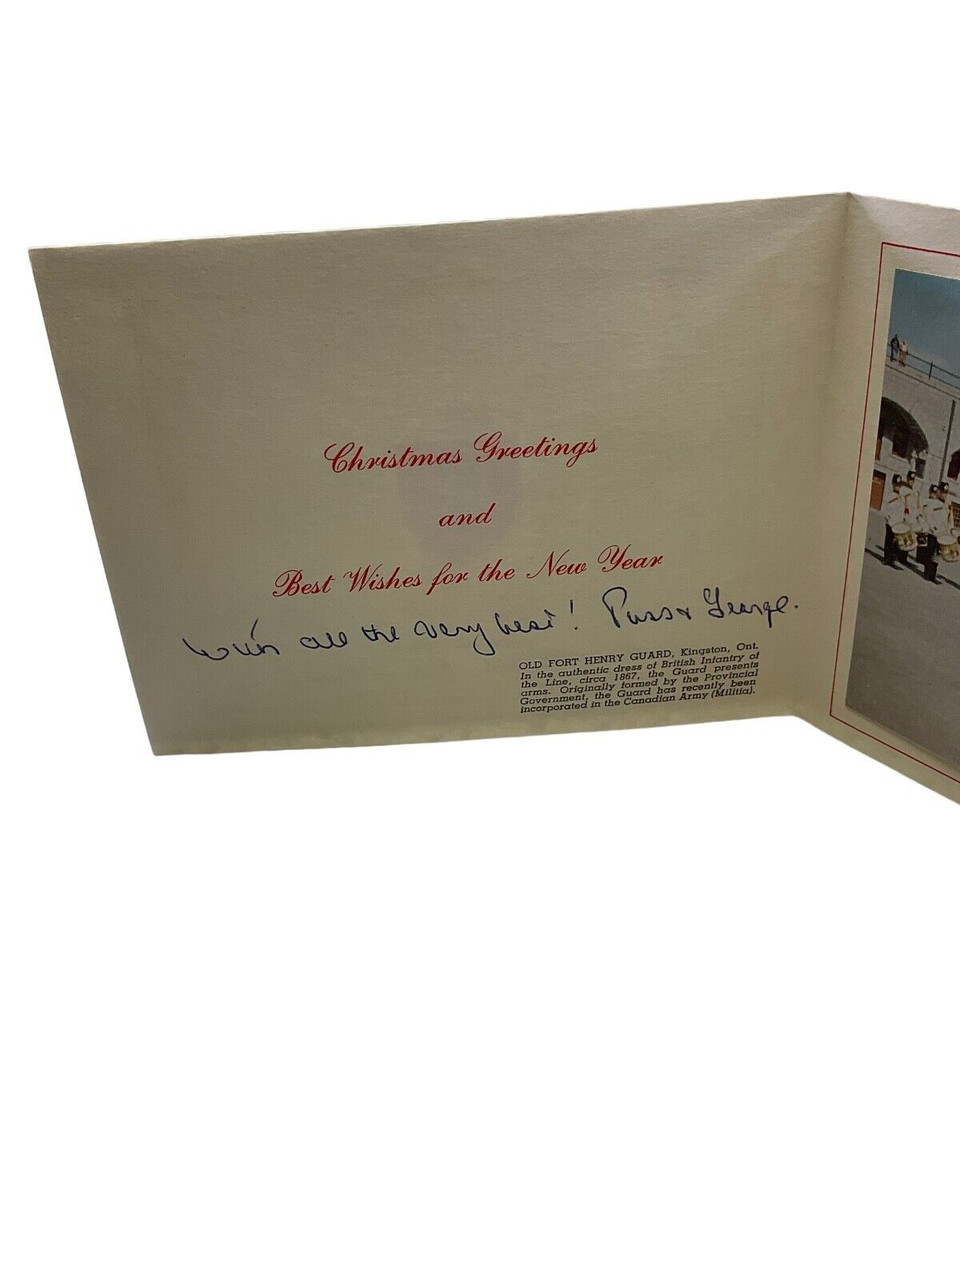 Christmas Greetings
and
Best Wishes for the New Year
With all the very best! Puss & George.
OLD FORT HENRY GUARD, Kingston, Ont.
In the authentic dress of British Infantry of
the Line, circa 1867, the Guard presents
arms. Originally formed by the Provincial
Government, the Guard has recently been
incorporated in the Canadian Army (Militia).